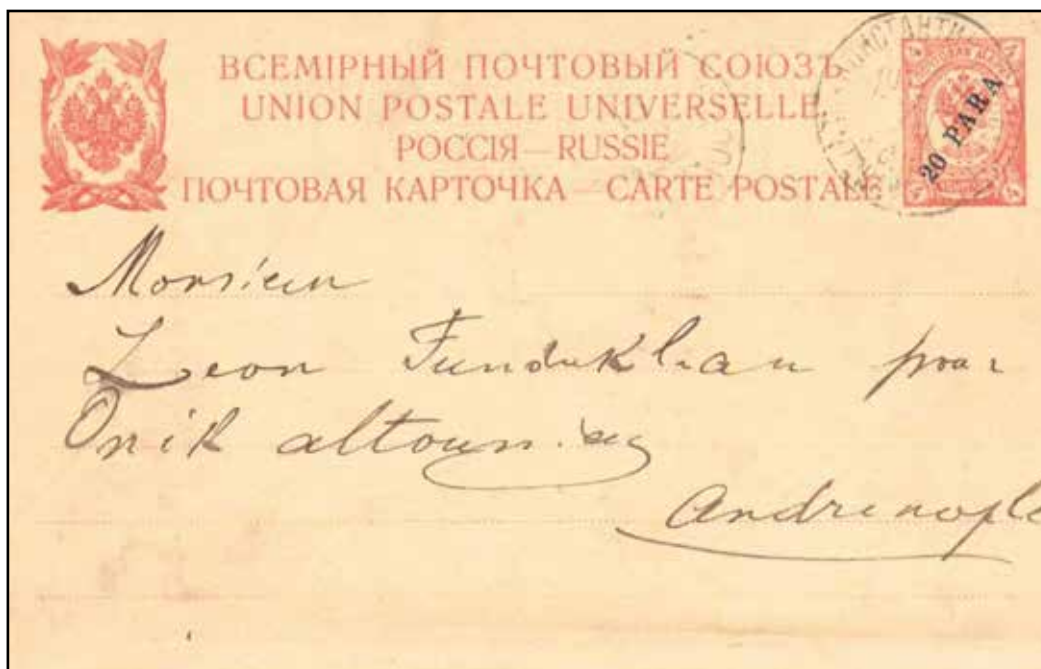 ВСЕМІРНЫЙ ПОЧТОВЫЙ СОЮЗЪ
UNION POSTALE UNIVERSELLE
РОССІЯ—RUSSIE
ПОЧТОВАЯ КАРТОЧКА—CARTE POSTALE
20 PARA
Monsieur
Leon Funduklian pour
Onik altounian
Andrinople